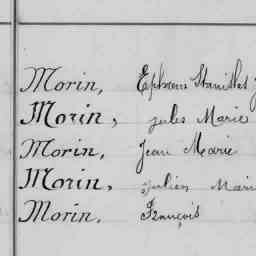 Morin, Ephrem Stanislas
Morin, jules Marie
Morin, Jean Marie
Morin, julien Mari
Morin. François